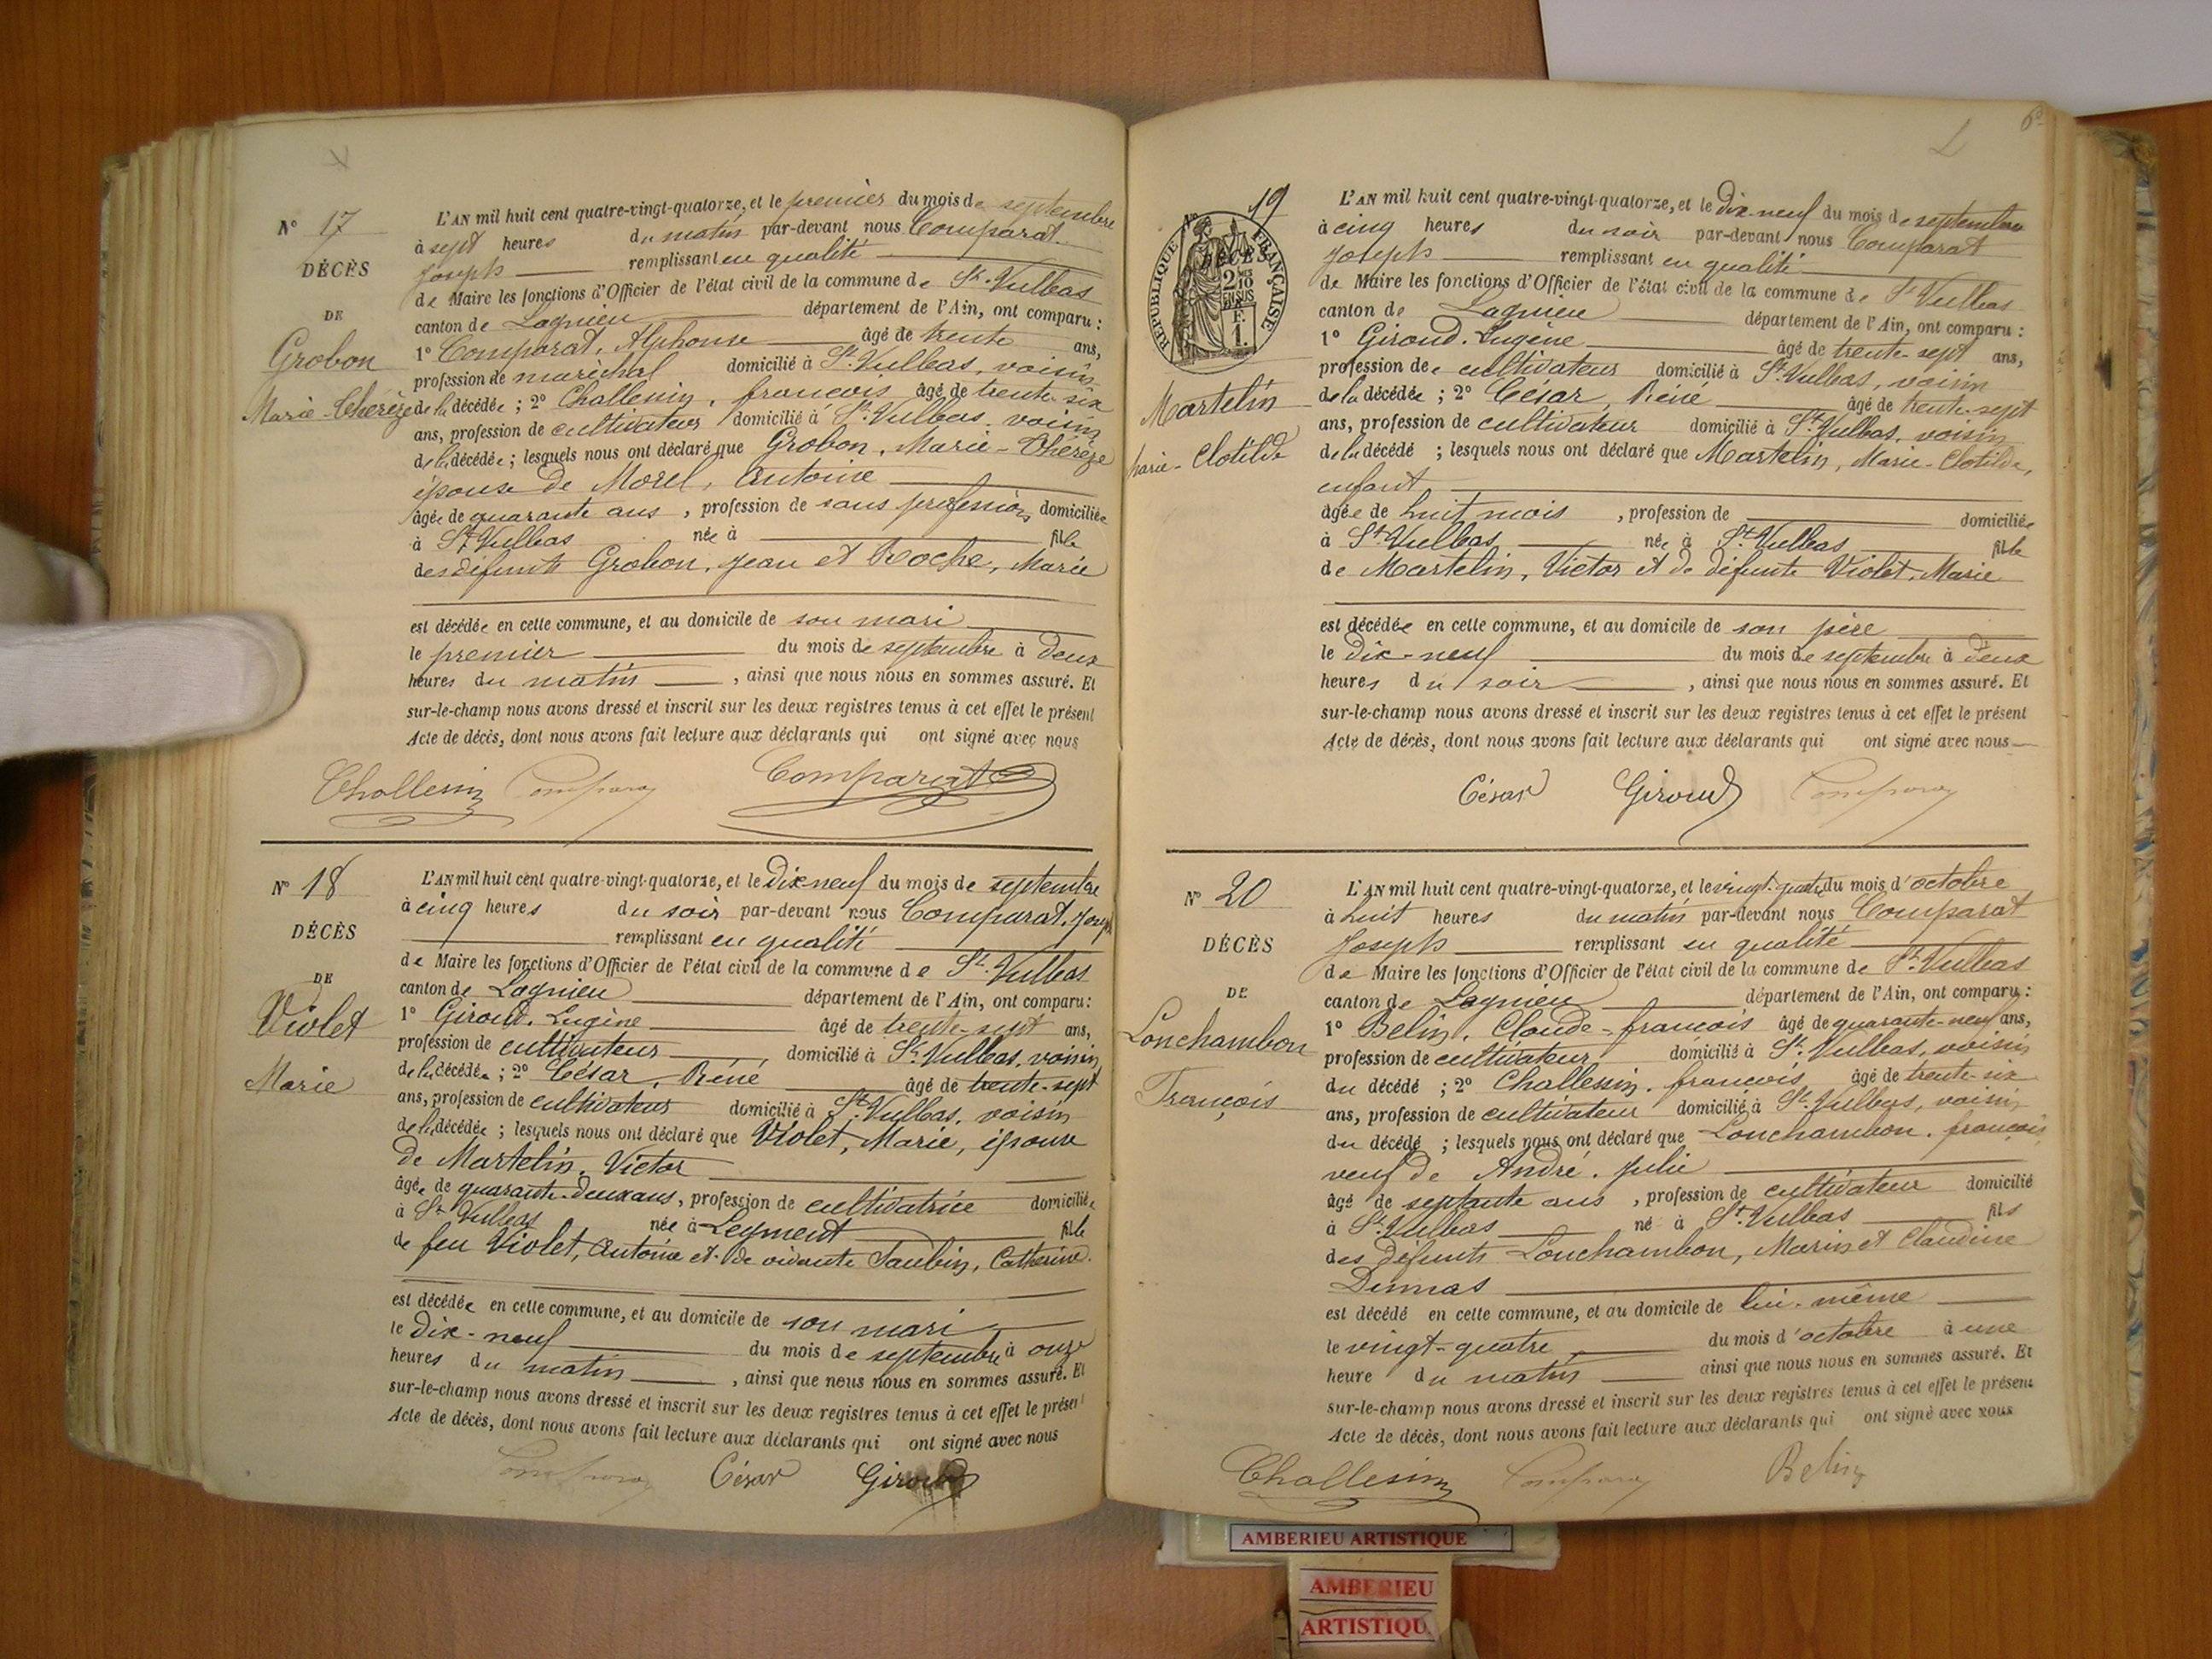 N° 17
DÉCÈS
DE
Grobon
Marie-Thérèze
L'AN mil huit cent quatre-vingt-quatorze, et le premier du mois de septembre
à sept heures du matin par-devant nous Comparat
Joseph remplissant en qualité
de Maire les fonctions d'Officier de l'état civil de la commune de St. Vulbas
canton de Lagnieu département de l'Ain, ont comparu :
1° Comparat, Alphonse âgé de trente ans,
profession de maréchal domicilié à St. Vulbas, voisin
de la décédée ; 2° Challesin, françois âgé de trente-six
ans, profession de cultivateur domicilié à St. Vulbas, voisin
de la décédée ; lesquels nous ont déclaré que Grobon, Marie-Thérèze
épouse de Morel, Antoine
âgée de quarante ans, profession de sans profession domiciliée
à St Vulbas née à fille
des défunts Grobon, Jean et Roche, Marie
est décédée en cette commune, et au domicile de son mari
le premier du mois de septembre à deux
heures du matin, ainsi que nous nous en sommes assuré. Et
sur-le-champ nous avons dressé et inscrit sur les deux registres tenus à cet effet le présent
Acte de décès, dont nous avons fait lecture aux déclarants qui ont signé avec nous
Challesin Comparat Comparat
N° 18
DÉCÈS
DE
Violet
Marie
L'AN mil huit cent quatre-vingt-quatorze, et le Dix-neuf du mois de septembre
à cinq heures du soir par-devant nous Comparat, Joseph
remplissant en qualité
de Maire les fonctions d'Officier de l'état civil de la commune de St. Vulbas
canton de Lagnieu département de l'Ain, ont comparu :
1° Giroud, Eugène âgé de trente-sept ans,
profession de cultivateur domicilié à St. Vulbas, voisin
de la décédée ; 2° César, Réné âgé de trente-sept
ans, profession de cultivateur domicilié à St. Vulbas, voisin
de la décédée ; lesquels nous ont déclaré que Violet, Marie, épouse
de Martelin, Victor
âgée de quarante-deux ans, profession de cultivatrice domiciliée
à St Vulbas née à Leyment fille
de feu Violet, Antoine et de vivante Taubin, Catherine
est décédée en cette commune, et au domicile de son mari
le dix-neuf du mois de septembre à onze
heures du matin, ainsi que nous nous en sommes assuré. Et
sur-le-champ nous avons dressé et inscrit sur les deux registres tenus à cet effet le présent
Acte de décès, dont nous avons fait lecture aux déclarants qui ont signé avec nous
Comparat César Giroud
N° 19
DÉCÈS
RÉPUBLIQUE FRANÇAISE
2/10 EN SUS
F. 1.
Martelin
Marie-Clotilde
L'AN mil huit cent quatre-vingt-quatorze, et le Dix-neuf du mois de septembre
à cinq heures du soir par-devant nous Comparat
Joseph remplissant en qualité
de Maire les fonctions d'Officier de l'état civil de la commune de St Vulbas
canton de Lagnieu département de l'Ain, ont comparu :
1° Giroud, Eugène âgé de trente-sept ans,
profession de cultivateur domicilié à St. Vulbas, voisin
de la décédée ; 2° César, Réné âgé de trente-sept
ans, profession de cultivateur domicilié à St. Vulbas, voisin
de la décédé ; lesquels nous ont déclaré que Martelin, Marie-Clotilde,
enfant
âgée de huit mois, profession de domiciliée
à St. Vulbas née à St. Vulbas fille
de Martelin, Victor et de défunte Violet, Marie
est décédée en cette commune, et au domicile de son père
le Dix-neuf du mois de septembre à deux
heures du soir, ainsi que nous nous en sommes assuré. Et
sur-le-champ nous avons dressé et inscrit sur les deux registres tenus à cet effet le présent
Acte de décès, dont nous avons fait lecture aux déclarants qui ont signé avec nous
César Giroud Comparat
N° 20
DÉCÈS
DE
Lonchambon
François
L'AN mil huit cent quatre-vingt-quatorze, et le vingt-quatre du mois d'octobre
à huit heures du matin par-devant nous Comparat
Joseph remplissant en qualité
de Maire les fonctions d'Officier de l'état civil de la commune de St. Vulbas
canton de Lagnieu département de l'Ain, ont comparu :
1° Belin, Claude-françois âgé de quarante-neuf ans,
profession de cultivateur domicilié à St. Vulbas, voisin
du décédé ; 2° Challesin, françois âgé de trente-six
ans, profession de cultivateur domicilié à St. Vulbas, voisin
du décédé ; lesquels nous ont déclaré que Lonchambon, françois
veuf de André, Julie
âgé de septante ans, profession de cultivateur domicilié
à St. Vulbas né à St. Vulbas fils
des défunts Lonchambon, Marin et Claudine
Dumas
est décédé en cette commune, et au domicile de lui-même
le vingt-quatre du mois d'octobre à une
heure du matin ainsi que nous nous en sommes assuré. Et
sur-le-champ nous avons dressé et inscrit sur les deux registres tenus à cet effet le présent
Acte de décès, dont nous avons fait lecture aux déclarants qui ont signé avec nous
Challesin Comparat Belin
AMBERIEU ARTISTIQUE
AMBERIEU
ARTISTIQU